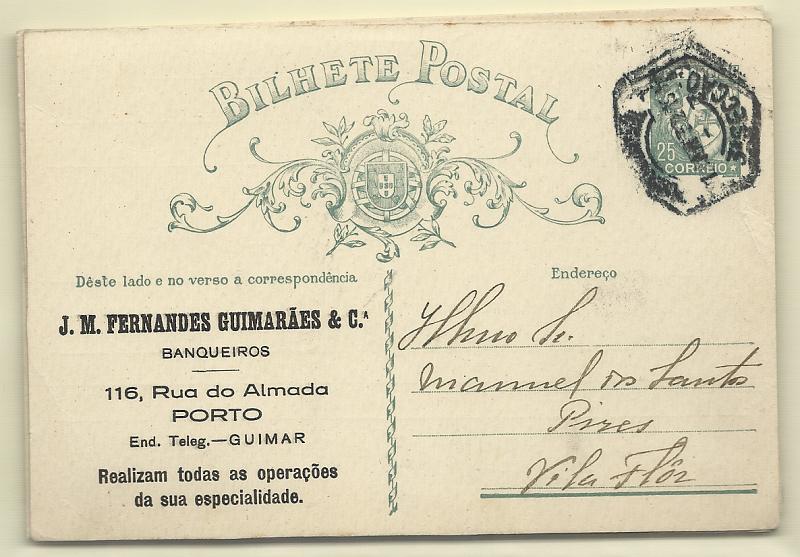 BILHETE POSTAL
25
CORREIO
Dêste lado e no verso a correspondência
Endereço
J. M. FERNANDES GUIMARÃES & C.ª
BANQUEIROS
116, Rua do Almada
PORTO
End. Teleg.—GUIMAR
Realizam todas as operações
da sua especialidade.
Illmo Sr.
Manuel dos Santos
Pires
Vila Flôr